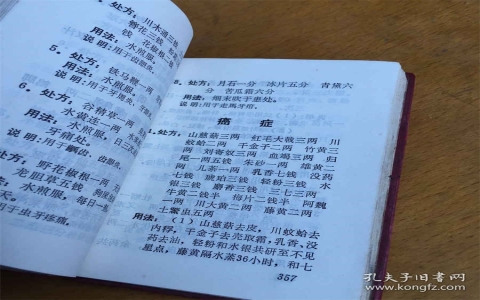 处方：川木通三钱
5．处方：铁马鞭一两
用法：水煎服。
说明：用于牙周炎、牙
6．处方：谷精草一两
牙痛处。
说明：用于龋齿、齿龈
处方：野花椒根一两
龙胆草五钱
用法：水煎服，每日一
说明：用于虫牙疼痛。
处方：月石一分 冰片五分 青黛六
分 苦瓜霜六分
用法：细末吹于患处。
说明：用于走馬牙疳。
癌症
1．处方：山慈菇三两 红毛大戟三两 川
蚊蛤二两 千金子二两 竹黄三
两 刘寄奴三两 血竭三两 归
尾一两五钱 朱砂一两 雄黄一
两 儿茶一两 乳香七钱 没药
七钱 琥珀三钱 轻粉三钱 水
银三钱 麝香三钱
牛黄二钱半 梅片二钱半 阿魏
一两 川大黄二两 藤黄二两
土鳖虫五两
用法：（1）山慈菇去皮，川蚊蛤去
内稃，千金子去壳取霜，乳香、没
药去油，轻粉和水银共研至不见
星点，藤黄隔水蒸36小时，和七
357
孔夫子旧书网
www.kongfz.com